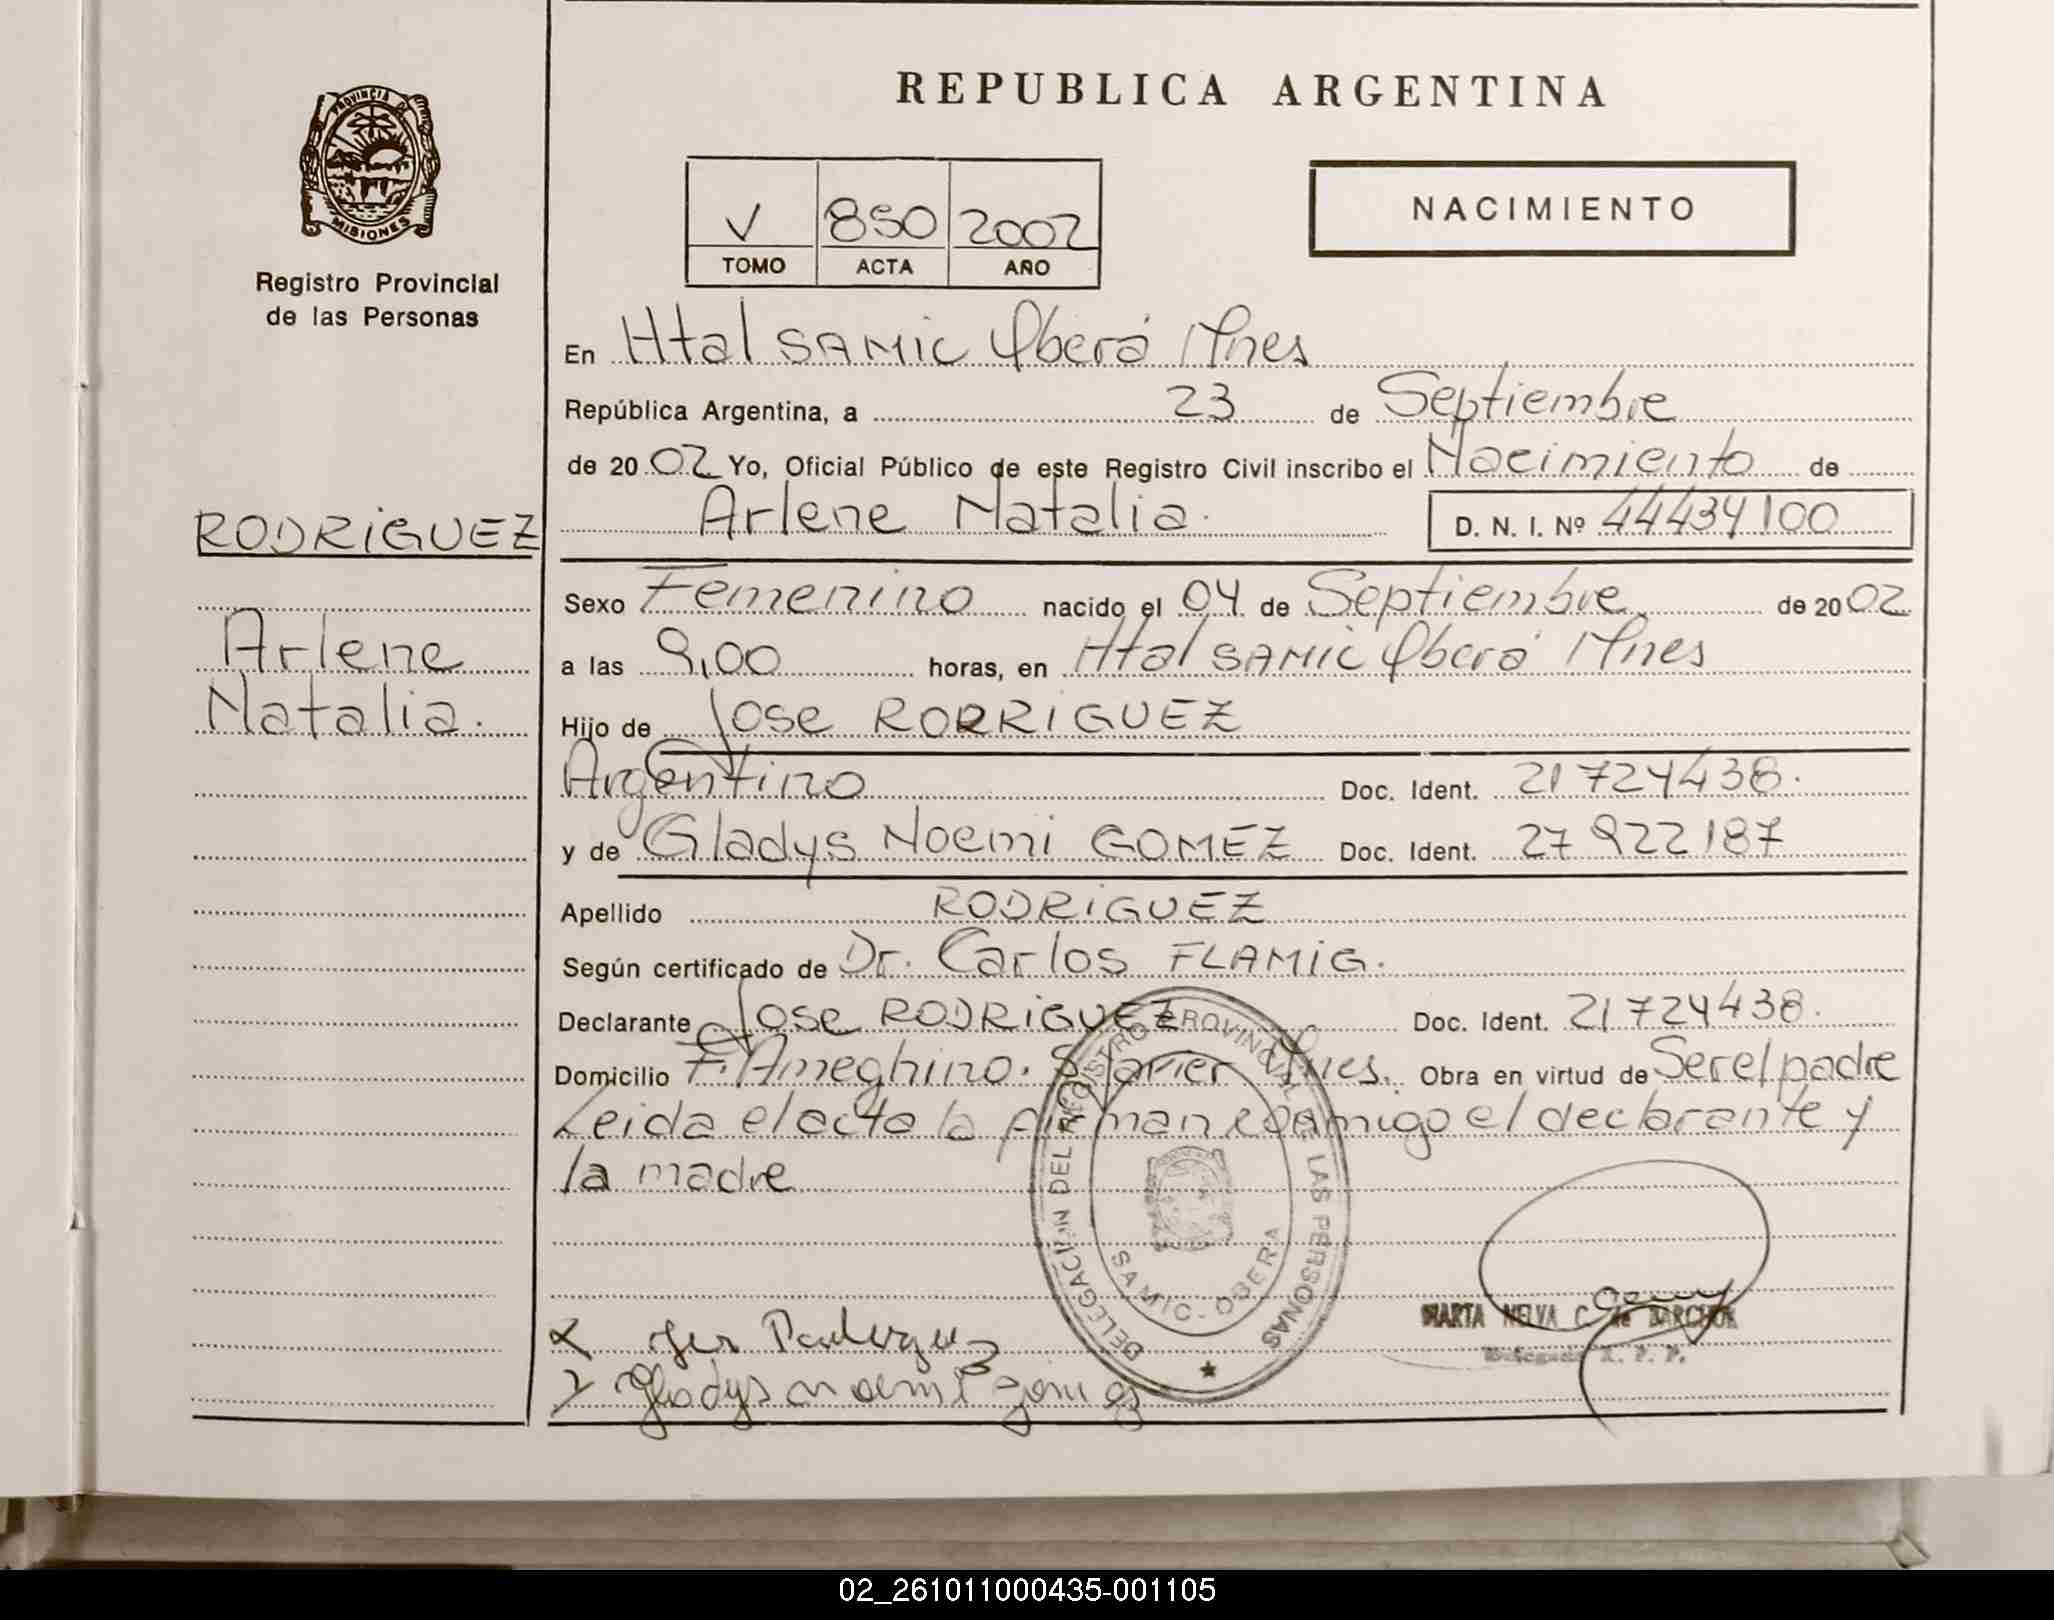 REPUBLICA ARGENTINA
PROVINCIA DE
MISIONES
Registro Provincial
de las Personas
V 850 2002
TOMO ACTA AÑO
NACIMIENTO
En Htal SAMIC Oberá Mnes
República Argentina, a 23 de Septiembre
de 2002 Yo, Oficial Público de este Registro Civil inscribo el Nacimiento de
Arlene Natalia. D. N. I. Nº 44434100
RODRIGUEZ
Arlene
Natalia.
Sexo Femenino nacido el 04 de Septiembre de 2002
a las 9,00 horas, en Htal SAMIC Oberá Mnes
Hijo de Jose RORRIGUEZ
Argentino Doc. Ident. 21724438.
y de Gladys Noemi GOMEZ Doc. Ident. 27922187
Apellido RODRIGUEZ
Según certificado de Dr. Carlos FLAMIG.
Declarante Jose RODRIGUEZ Doc. Ident. 21724438.
Domicilio F. Ameghino. S. Javier Mnes. Obra en virtud de Ser el padre
Leida el acta la firman conmigo el declarante y
la madre
DELEGACION DEL REGISTRO PROVINCIAL DE LAS PERSONAS
SAMIC - OBERA
MARTA NELVA C. de BARCHUK
Delegada R. P. P.
Jose Rodriguez
Gladys noemi gomez
02_261011000435-001105